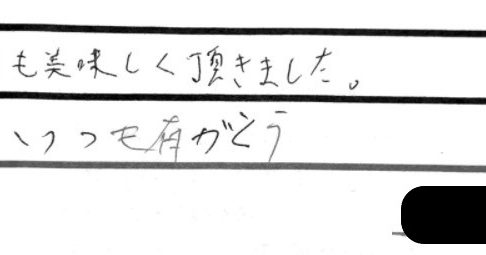 も美味しく頂きました。
いつも有がとう